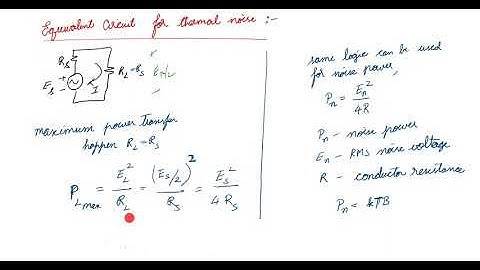 Equivalent Circuit for thermal noise :-
Rs
Es
I
RL=Rs
Es/2
maximum power transfer
happen RL=Rs
PLmax = EL²/RL = (Es/2)²/Rs = Es²/4Rs
same logic can be used
for noise power,
Pn = En²/4R
Pn - noise power
En - RMS noise voltage
R - conductor resistance
Pn = kTB